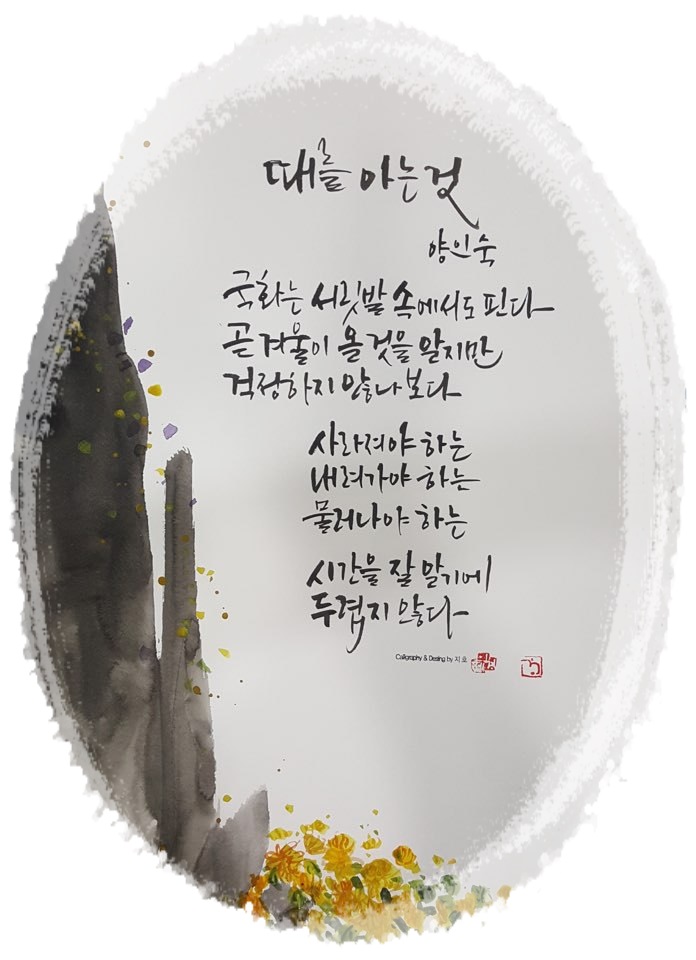 때를 아는 것
양인숙
국화는 서릿발 속에서도 핀다
곧 겨울이 올 것을 알지만
걱정하지 않나 보다
사라져야 하는
내려가야 하는
물러나야 하는
시간을 잘 알기에
두렵지 않다
Calligraphy & Desing by 지호